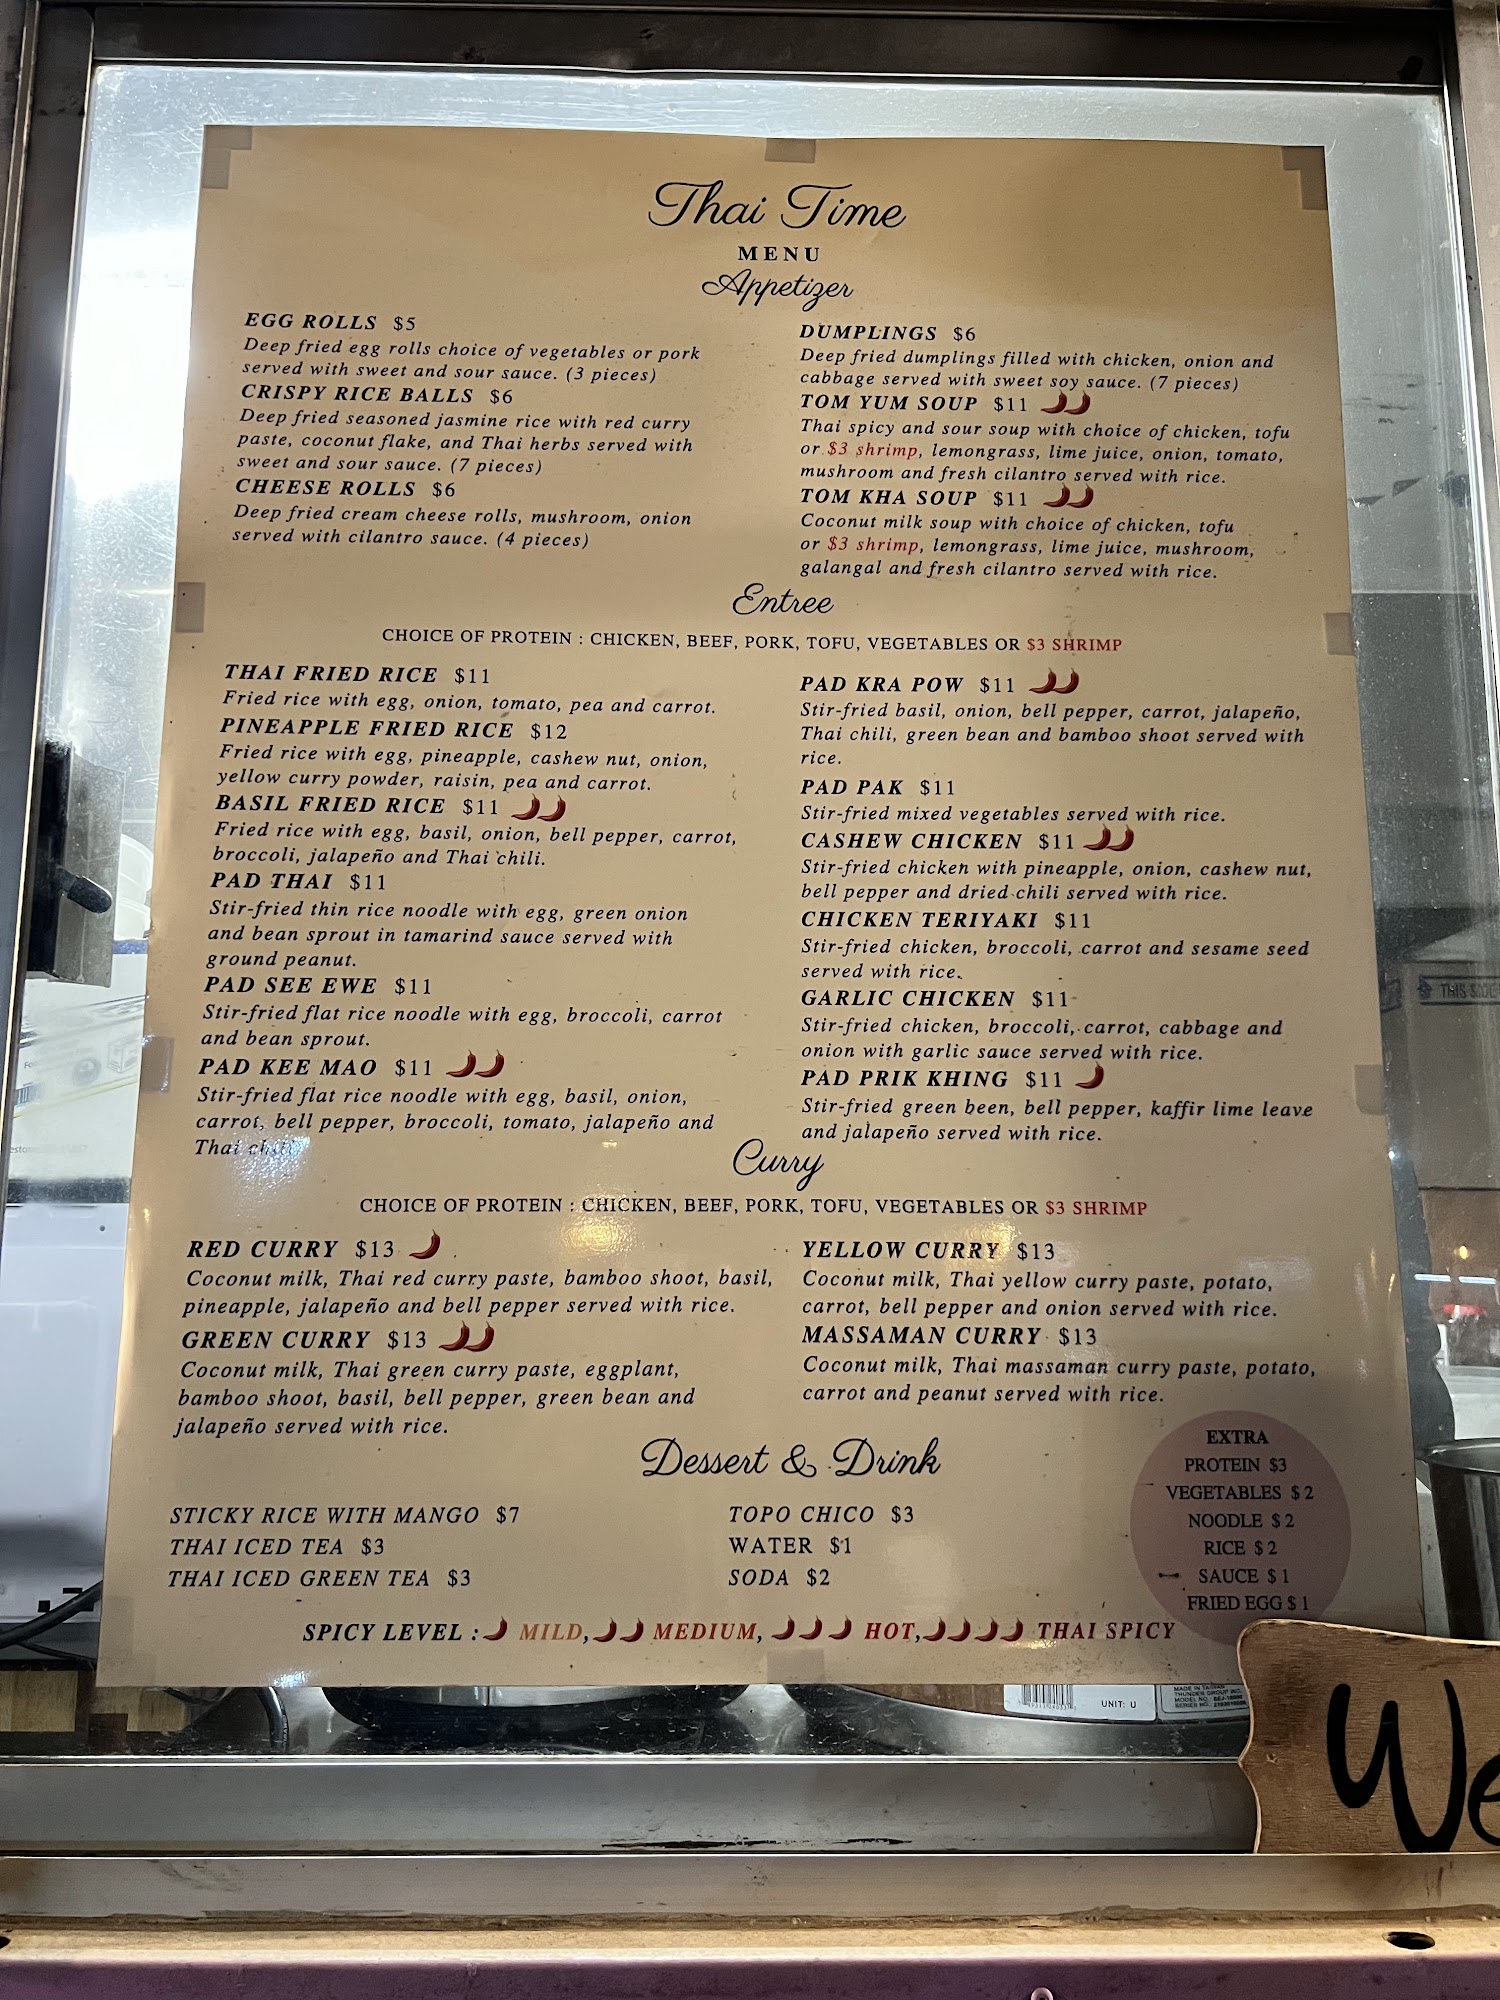 Thai Time
MENU
Appetizer
EGG ROLLS $5
Deep fried egg rolls choice of vegetables or pork
served with sweet and sour sauce. (3 pieces)
CRISPY RICE BALLS $6
Deep fried seasoned jasmine rice with red curry
paste, coconut flake, and Thai herbs served with
sweet and sour sauce. (7 pieces)
CHEESE ROLLS $6
Deep fried cream cheese rolls, mushroom, onion
served with cilantro sauce. (4 pieces)
DUMPLINGS $6
Deep fried dumplings filled with chicken, onion and
cabbage served with sweet soy sauce. (7 pieces)
TOM YUM SOUP $11
Thai spicy and sour soup with choice of chicken, tofu
or $3 shrimp, lemongrass, lime juice, onion, tomato,
mushroom and fresh cilantro served with rice.
TOM KHA SOUP $11
Coconut milk soup with choice of chicken, tofu
or $3 shrimp, lemongrass, lime juice, mushroom,
galangal and fresh cilantro served with rice.
Entree
CHOICE OF PROTEIN : CHICKEN, BEEF, PORK, TOFU, VEGETABLES OR $3 SHRIMP
THAI FRIED RICE $11
Fried rice with egg, onion, tomato, pea and carrot.
PINEAPPLE FRIED RICE $12
Fried rice with egg, pineapple, cashew nut, onion,
yellow curry powder, raisin, pea and carrot.
BASIL FRIED RICE $11
Fried rice with egg, basil, onion, bell pepper, carrot,
broccoli, jalapeño and Thai chili.
PAD THAI $11
Stir-fried thin rice noodle with egg, green onion
and bean sprout in tamarind sauce served with
ground peanut.
PAD SEE EWE $11
Stir-fried flat rice noodle with egg, broccoli, carrot
and bean sprout.
PAD KEE MAO $11
Stir-fried flat rice noodle with egg, basil, onion,
carrot, bell pepper, broccoli, tomato, jalapeño and
Thai chili.
PAD KRA POW $11
Stir-fried basil, onion, bell pepper, carrot, jalapeño,
Thai chili, green bean and bamboo shoot served with
rice.
PAD PAK $11
Stir-fried mixed vegetables served with rice.
CASHEW CHICKEN $11
Stir-fried chicken with pineapple, onion, cashew nut,
bell pepper and dried chili served with rice.
CHICKEN TERIYAKI $11
Stir-fried chicken, broccoli, carrot and sesame seed
served with rice.
GARLIC CHICKEN $11
Stir-fried chicken, broccoli, carrot, cabbage and
onion with garlic sauce served with rice.
PAD PRIK KHING $11
Stir-fried green been, bell pepper, kaffir lime leave
and jalapeño served with rice.
Curry
CHOICE OF PROTEIN : CHICKEN, BEEF, PORK, TOFU, VEGETABLES OR $3 SHRIMP
RED CURRY $13
Coconut milk, Thai red curry paste, bamboo shoot, basil,
pineapple, jalapeño and bell pepper served with rice.
GREEN CURRY $13
Coconut milk, Thai green curry paste, eggplant,
bamboo shoot, basil, bell pepper, green bean and
jalapeño served with rice.
YELLOW CURRY $13
Coconut milk, Thai yellow curry paste, potato,
carrot, bell pepper and onion served with rice.
MASSAMAN CURRY $13
Coconut milk, Thai massaman curry paste, potato,
carrot and peanut served with rice.
Dessert & Drink
STICKY RICE WITH MANGO $7
THAI ICED TEA $3
THAI ICED GREEN TEA $3
TOPO CHICO $3
WATER $1
SODA $2
EXTRA
PROTEIN $3
VEGETABLES $2
NOODLE $2
RICE $2
SAUCE $1
FRIED EGG $1
SPICY LEVEL : MILD, MEDIUM, HOT, THAI SPICY
THIS SIDE
UNIT: U
MADE IN TAIWAN
THUNDER GROUP INC.
We